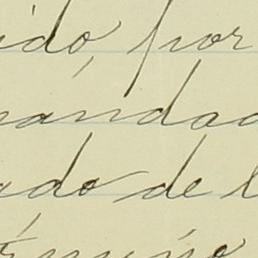 ido, por
andad
ado de l